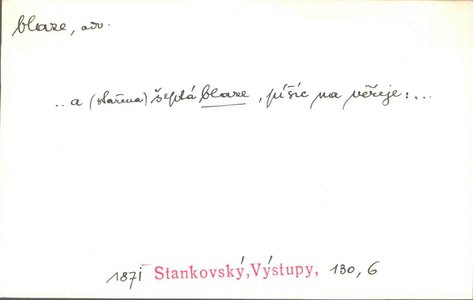 blaze, adv.
..a (stařena) šeptá blaze, píšíc na věřeje:...
1871 Stankovský, Výstupy, 130, 6